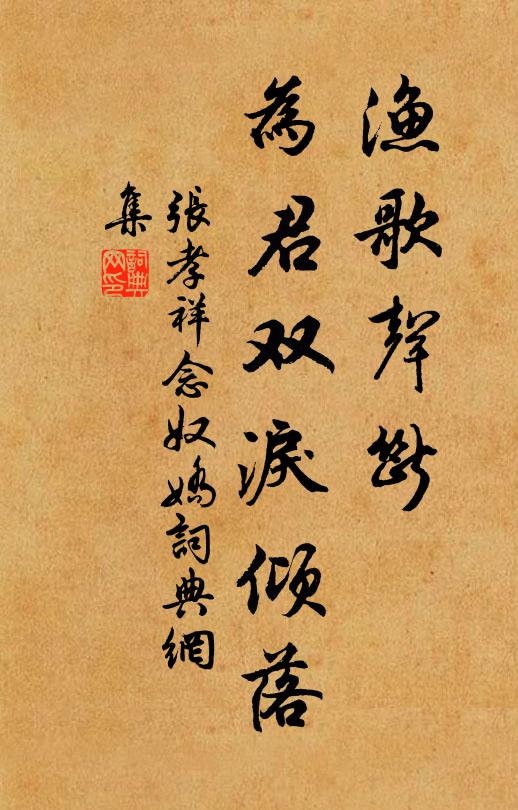 漁歌聲斷
為君双淚傾落
張孝祥念奴嬌詞典網
集
詞典网印